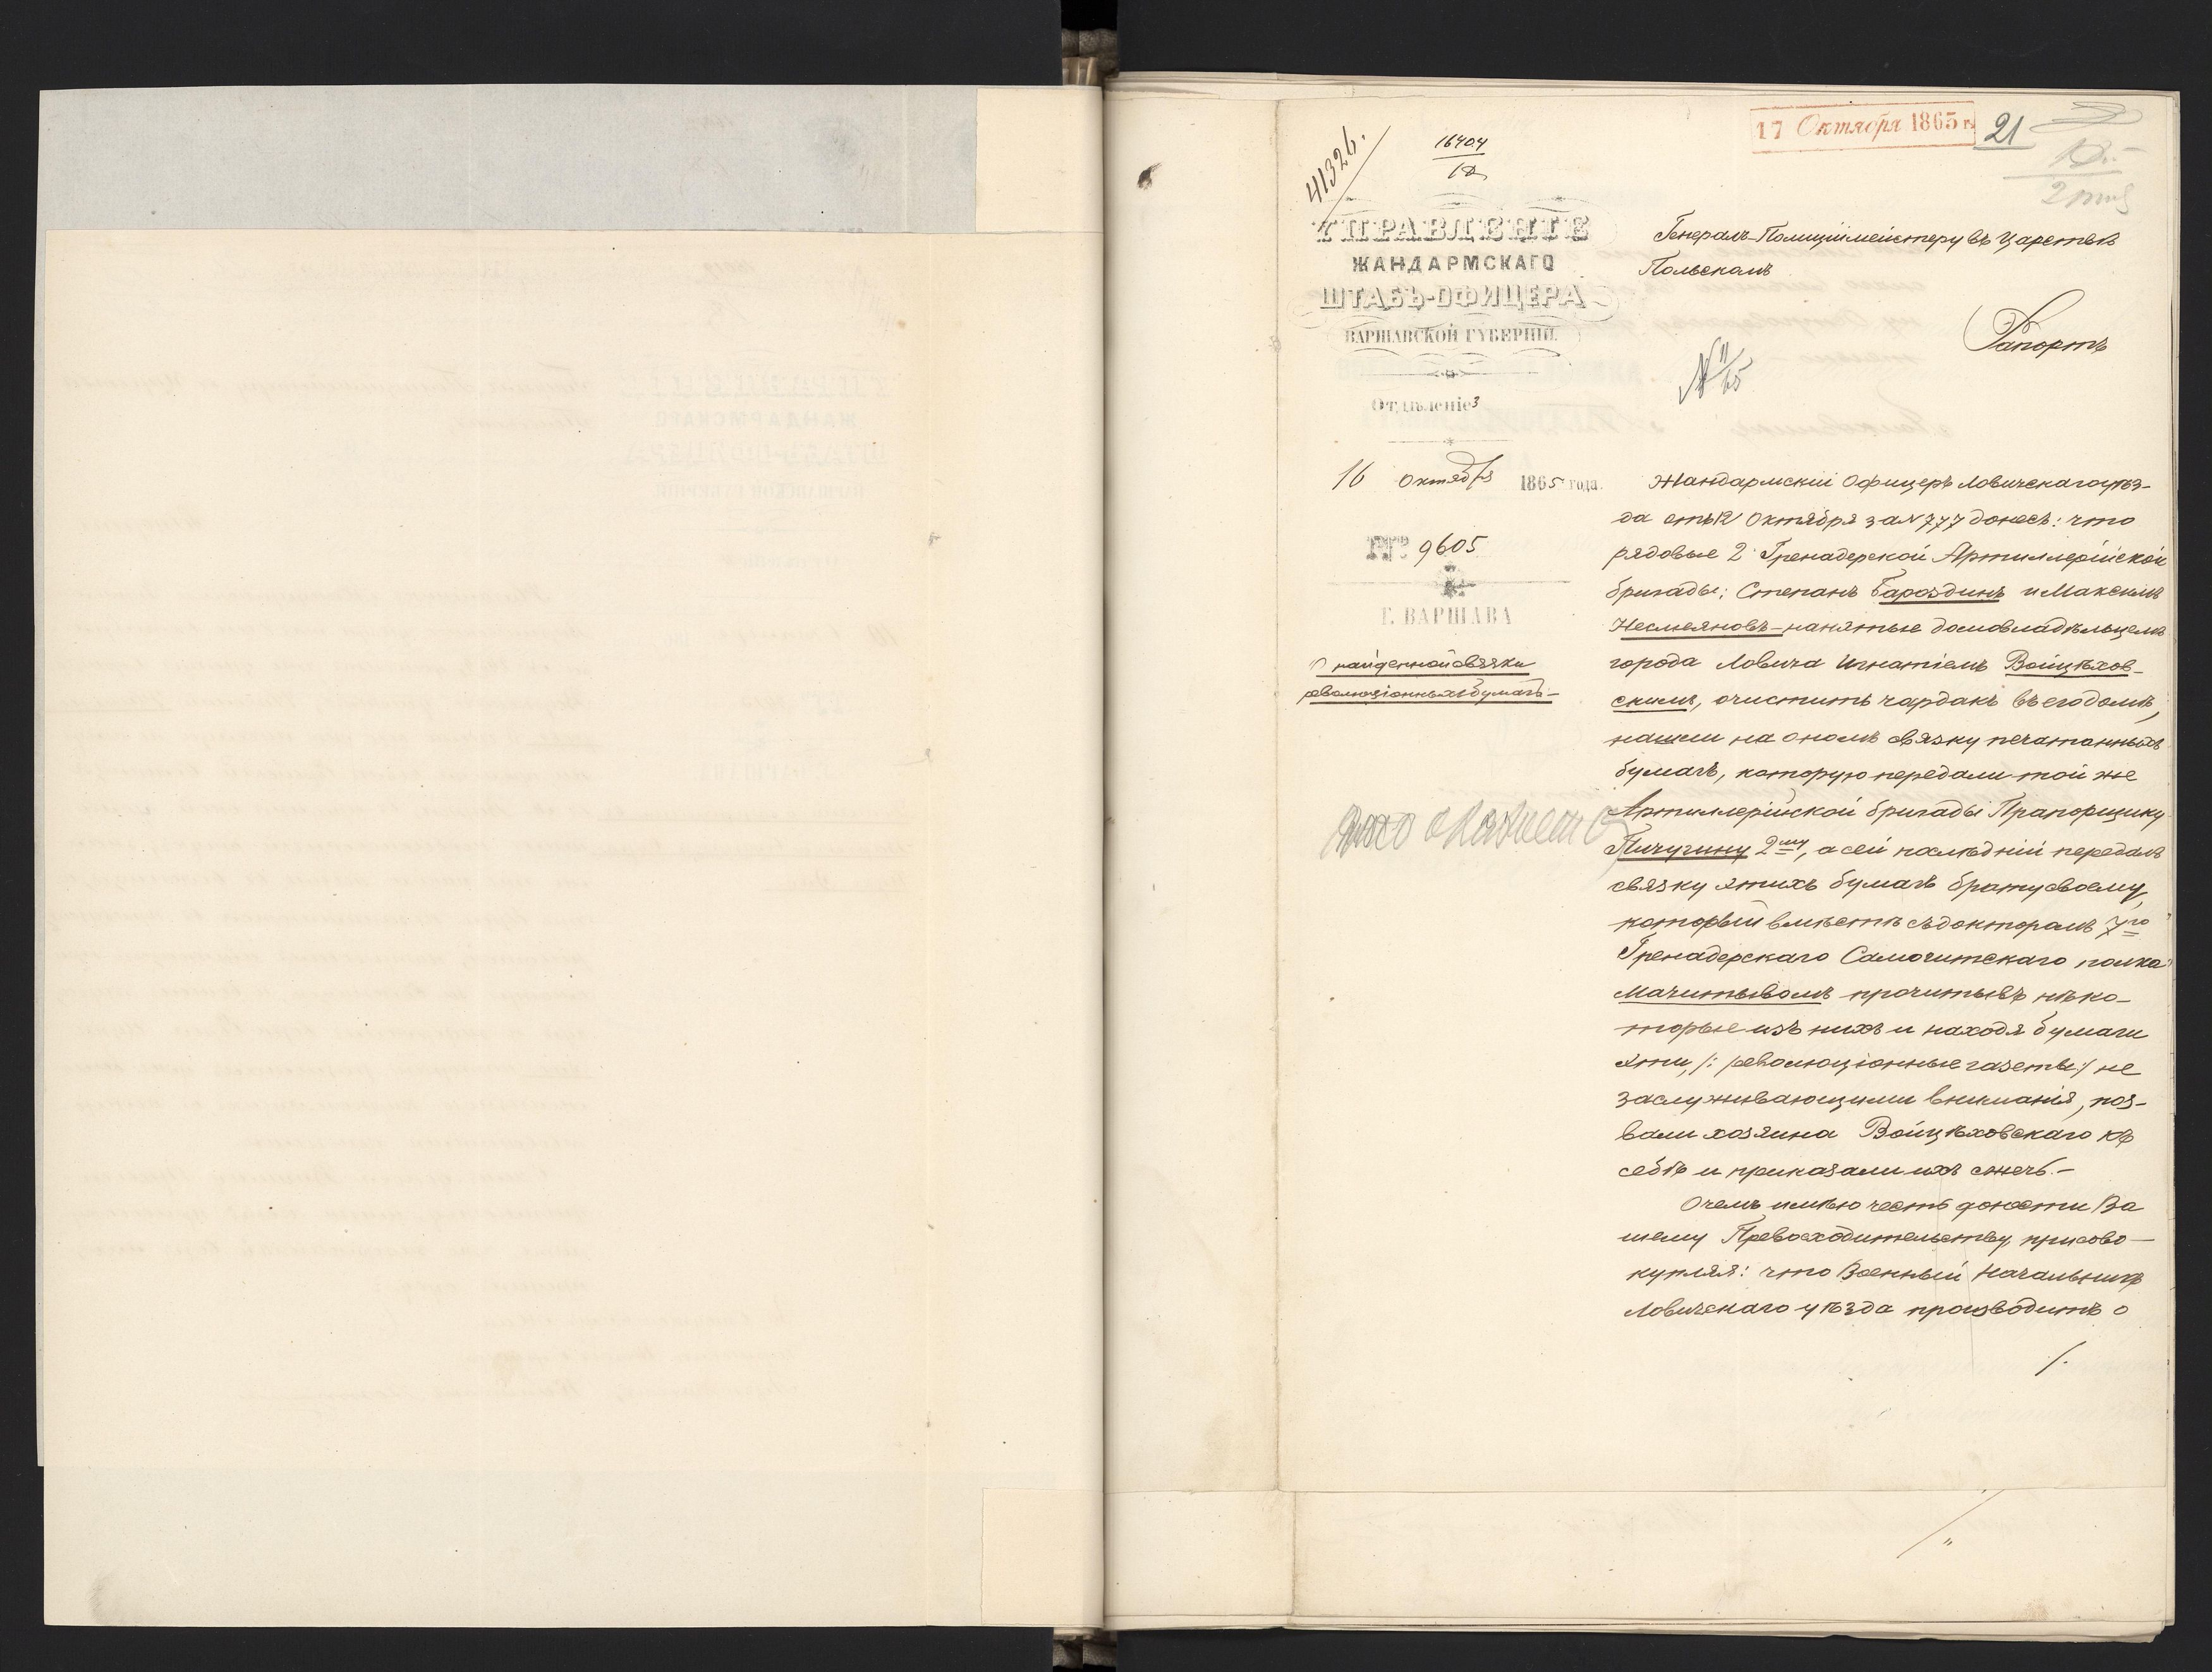 17 Октября 1865 г.
21
41326.
16404
УПРАВЛЕНІЕ
ЖАНДАРМСКАГО
ШТАБЪ-ОФИЦЕРА
ВАРШАВСКОЙ ГУБЕРНІИ.
Отдѣленіе 3
16 Октября 1865 года.
№ 9605
Г. ВАРШАВА
О найденной связки
революціонныхъ бумагъ—
Генералъ-Полиціймейстеру въ Царствѣ
Польскомъ
Рапортъ
№ 11/65
Жандармскій Офицеръ Ловичскаго уѣз-
да отъ 12 Октября за № 777 донесъ: что
рядовые 2 Гренадерской Артиллерійской
бригады: Степанъ Бароздинъ и Максимъ
Несмеяновъ—нанятые домовладѣльцемъ
города Ловича Игнатіемъ Войцѣхов-
скимъ, очистить чардакъ въ его домѣ,
нашли на ономъ связку печатанныхъ
бумагъ, которую передали той же
Артиллерійской бригады Прапорщику
Пичугину 2му, а сей послѣдній передалъ
связку этихъ бумагъ брату своему,
который вмѣстѣ съ докторомъ 7го
Гренадерскаго Самогитскаго полка
Мачитывомъ прочитывъ нѣко-
торые изъ нихъ и находя бумаги
эти, /: революціонные газеты :/ не
заслуживающими вниманія, поз-
вали хозяина Войцѣховскаго къ
себѣ и приказали ихъ сжечь.—
О чемъ имѣю честь донести Ва
шему Превосходительству, присово-
купляя: что Военный Начальникъ
Ловичскаго уѣзда производитъ о
/.